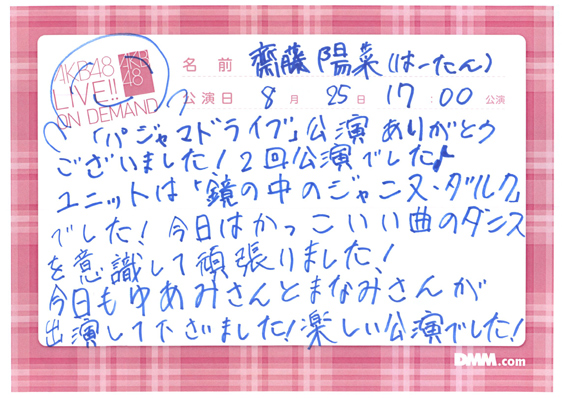 AKB48
LIVE!!
ON DEMAND
AKB
48
名前 齋藤陽菜(はーたん)
公演日 8月25日 17:00公演
「パジャマドライブ」公演ありがとう
ございました!2回公演でした♪
ユニットは「鏡の中のジャンヌ・ダルク」
でした!今日はかっこいい曲のダンス
を意識して頑張りました!
今日もゆあみさんとまなみさんが
出演して下さいました!楽しい公演でした!
DMM.com